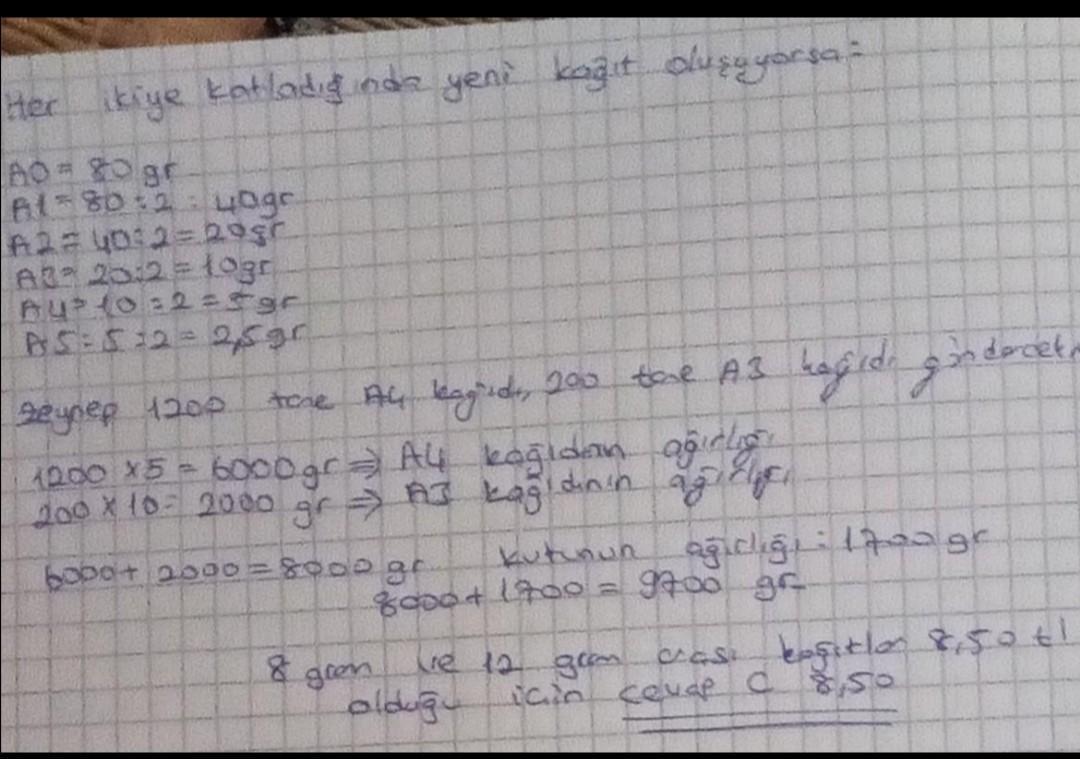 Her ikiye katladığında yeni kağıt oluşuyorsa:
A0 = 80 gr
A1 = 80:2 = 40gr
A2 = 40:2 = 20gr
A3 = 20:2 = 10gr
A4 = 10:2 = 5gr
A5 = 5:2 = 2,5gr
Zeynep 1200 tane A4 kağıdı, 200 tane A3 kağıdı
1200 x 5 = 6000gr ⇒ A4 kağıdının ağırlığı
200 x 10 = 2000 gr ⇒ A3 kağıdının ağırlığı
6000 + 2000 = 8000 gr kutunun ağırlığı : 1700 gr
8000 + 1700 = 9700 gr
8 gram ve 12 gram arası kağıtlar 8,50 tl
olduğu için cevap C 8,50